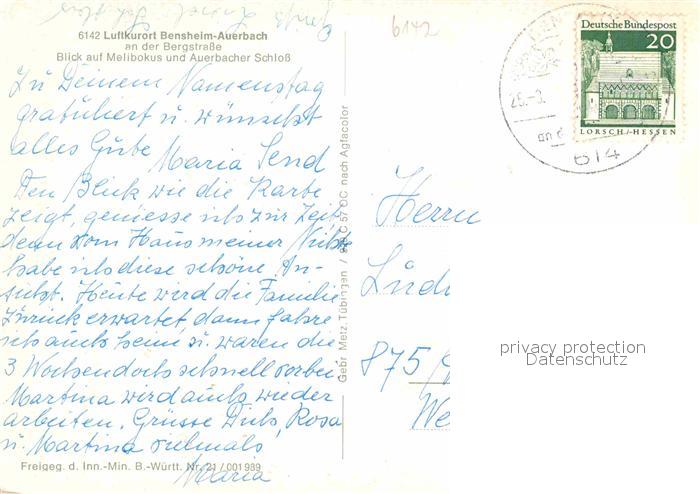 6142
6142 Luftkurort Bensheim-Auerbach
an der Bergstraße
Blick auf Melibokus und Auerbacher Schloß
Zu Deinem Namenstag
gratuliert u. wünscht
alles Gute
Maria Send
Den Blick wie die Karte
zeigt, geniesse ich zur Zeit,
denn vom Haus meiner Nichte
habe ich diese schöne An-
sicht. Heute wird die Familie
zurückerwartet, dann fahre
ich auch heim u. waren die
3 Wochen doch schnell vorbei
Martina wird auch wieder
arbeiten. Grüsse Dich, Rosa
u. Martina vielmals,
Maria
Freigeg. d. Inn.-Min. B.-Württ. Nr. 21 / 001989
Gebr. Metz, Tübingen / C 57 OC nach Agfacolor
Deutsche Bundespost
20
LORSCH/HESSEN
614
Herrn
875
We
privacy protection
Datenschutz